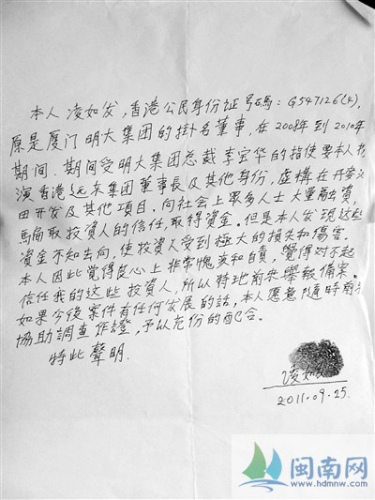 本人 凌如发，香港公民身份证号码：G547126(4)，
原是厦门明大集团的掛名董事，在2008年到2010年
期间．期间受明大集团总裁李宏华的指使要本人扮
演香港远东集团董事長及其他身份，虚構在开發文
田开發及其他項目．向社会上眾多人士大量融資，
騙取投資人的信任，取得資金。但是本人发現这些
資金不知去向，使投資人受到極大的损失和傷害。
本人因此覺得良心上非常愧疚和自責，覺得对不起
信任我的这些投資人，所以特地前來舉報備案。
如果今後案件有任何发展的話，本人愿意隨時前去
協助調查作證，予以充份的配合。
特此聲明．
凌如
2011.09.25.
闽南网
www.hdmnw.com